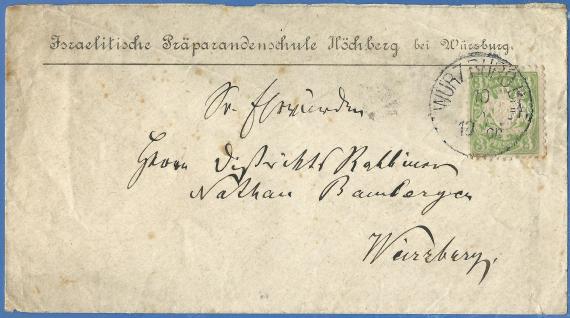 Israelitische Präparandenschule Höchberg bei Würzburg.
WÜRZBURG
3 3
Sr. Ehrwürden
Herrn Distrikts Rabbiner
Nathan Bamberger
Würzburg.